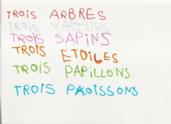 TROIS ARBRES
TROIS
TROIS SAPINS
TROIS ETOILES
TROIS PAPILLONS
TROIS PAOISSONS